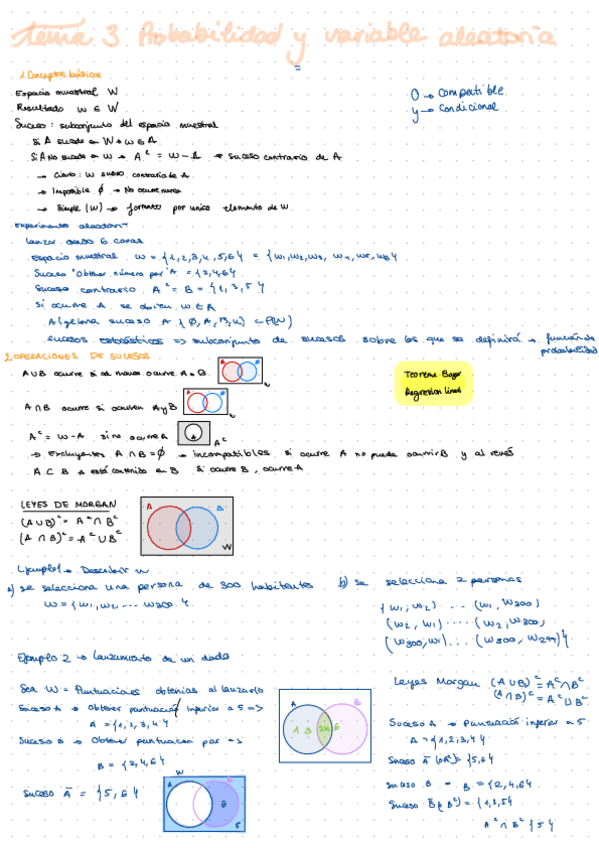 tema 3 Probabilidad y variable aleatoria
1. Conceptos básicos
Espacio muestral W
Resultado w ∈ W
O → Compatible
y → Condicional
Suceso: subconjunto del espacio muestral
Si A sucede → w ∈ A
Si A no sucede → A^c = W - A → Suceso contrario de A
→ Cierto: W suceso contrario de A
→ Imposible ∅ → No ocurre nunca
→ Simple {w} → formados por unico elemento de W
Experimento aleatorio
lanzar dado 6 caras
Espacio muestral W = {1,2,3,4,5,6} = {w1, w2, w3, w4, w5, w6}
Suceso "Obtener número par" A = {2,4,6}
Suceso contrario A^c = B = {1,3,5}
Si ocurre A se w ∈ A
suceso A {∅, A, B, W} ⊂ P(W)
sucesos estadísticos => subconjunto de sucesos sobre los que se definirá → función de probabilidad
2. OPERACIONES DE SUCESOS
A∪B ocurre si al menos ocurre A o B
A B
Teorema Bayes
Regresion lineal
A∩B ocurre si ocurren A y B
A B
A^c = W - A si no ocurre A
A A^c
→ Excluyentes A∩B = ∅ → incompatibles si ocurre A no puede ocurrir B y al revés
A ⊂ B A está contenido en B Si ocurre B, ocurre A
LEYES DE MORGAN
(A∪B)^c = A^c ∩ B^c
(A∩B)^c = A^c ∪ B^c
A B W
Ejemplo 1 → Describir W
a) se selecciona una persona de 300 habitantes
W = {w1, w2 ... w300}
b) se selecciona 2 personas
{(w1, w2) ... (w1, w300)
(w2, w1) ... (w2, w300)
(w300, w1) ... (w300, w299)}
Ejemplo 2 → lanzamiento de un dado
Sea W = Puntuaciones obtenidas al lanzarlo
Suceso A → Obtener puntuación inferior a 5 =>
A = {1,2,3,4}
Suceso B → Obtener puntuación par =>
B = {2,4,6}
Suceso Ā = {5,6}
A B
1 3 24 6
W
A
6
5
Leyes Morgan (A∪B)^c = A^c ∩ B^c
(A∩B)^c = A^c ∪ B^c
Suceso A → Puntuación inferior a 5
A = {1,2,3,4}
Suceso Ā (o A^c) = {5,6}
Suceso B = B = {2,4,6}
Suceso B̄ (o B^c) = {1,3,5}
A^c ∩ B^c {5}